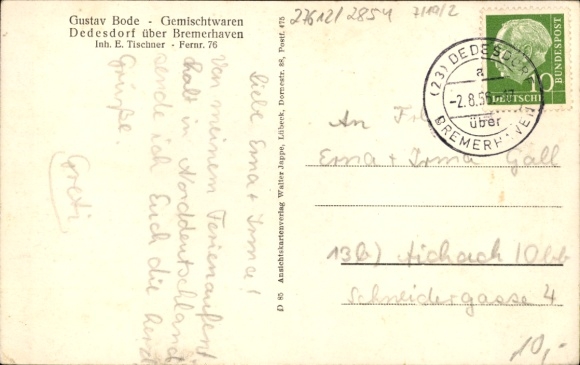 Gustav Bode - Gemischtwaren
Dedesdorf über Bremerhaven
Inh. E. Tischner - Fernr. 76
27612/2854 7119/2
Liebe Erna + Irma!
Von meinem Ferienaufent
halt in Norddeutschland
sende ich Euch die herzl
Grüße.
Greti
D 85 Ansichtskartenverlag Walter Jappe, Lübeck, Dornestr. 88, Postf. 475
DEUTSCHE
BUNDESPOST
10
(23) DEDESDORF
a
-2.8.56
über
BREMERHAVEN
An
Erna + Irma Gall
13b) Aichach/Obb
Schneidergasse 4
10,-